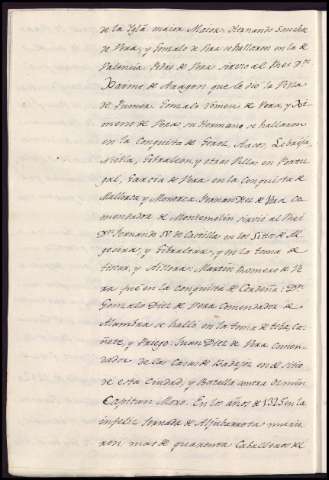 de la Ygla maior. Mosen Hernando Sanchez
de Vera, y Gonzalo de Vera se hallaron en la de
Valencia. Pedro de Vera sirvio al Rey Dn
Jaime de Aragon que le dio la Villa
de Gonzalo Ximenez de Vera, y Xi
meno de Vera su Hermano se hallaron
en la Conquista de
Niebla, Gibraleon, y otras Villas en Portu
gal, Garcia de Vera en la Conquista de
Mallorca, y Menorca. Fernan Diez de Vera Co
mendador de Montemolin sirvio al Rey
Dn Fernando de Castilla en los Sitios de Alge
ciras, y Gibraltar, y en la toma de
y Martin Romero de Ve
ra fue en la conquista de Cordova: Dn
Gonzalo Diez de Vera Comendador de
Alhambra se halló en la toma de Teba, Ca
ñete, y Priego: Juan Diez de Vera Comen
dador de las Casas de Badajoz en el sitio
de esta Ciudad, y Batalla contra Ozmin
Capitan Moro. En los años de 1325 en la
infeliz Jornada de Aljubarrota murie
ron mas de quarenta Caballeros de